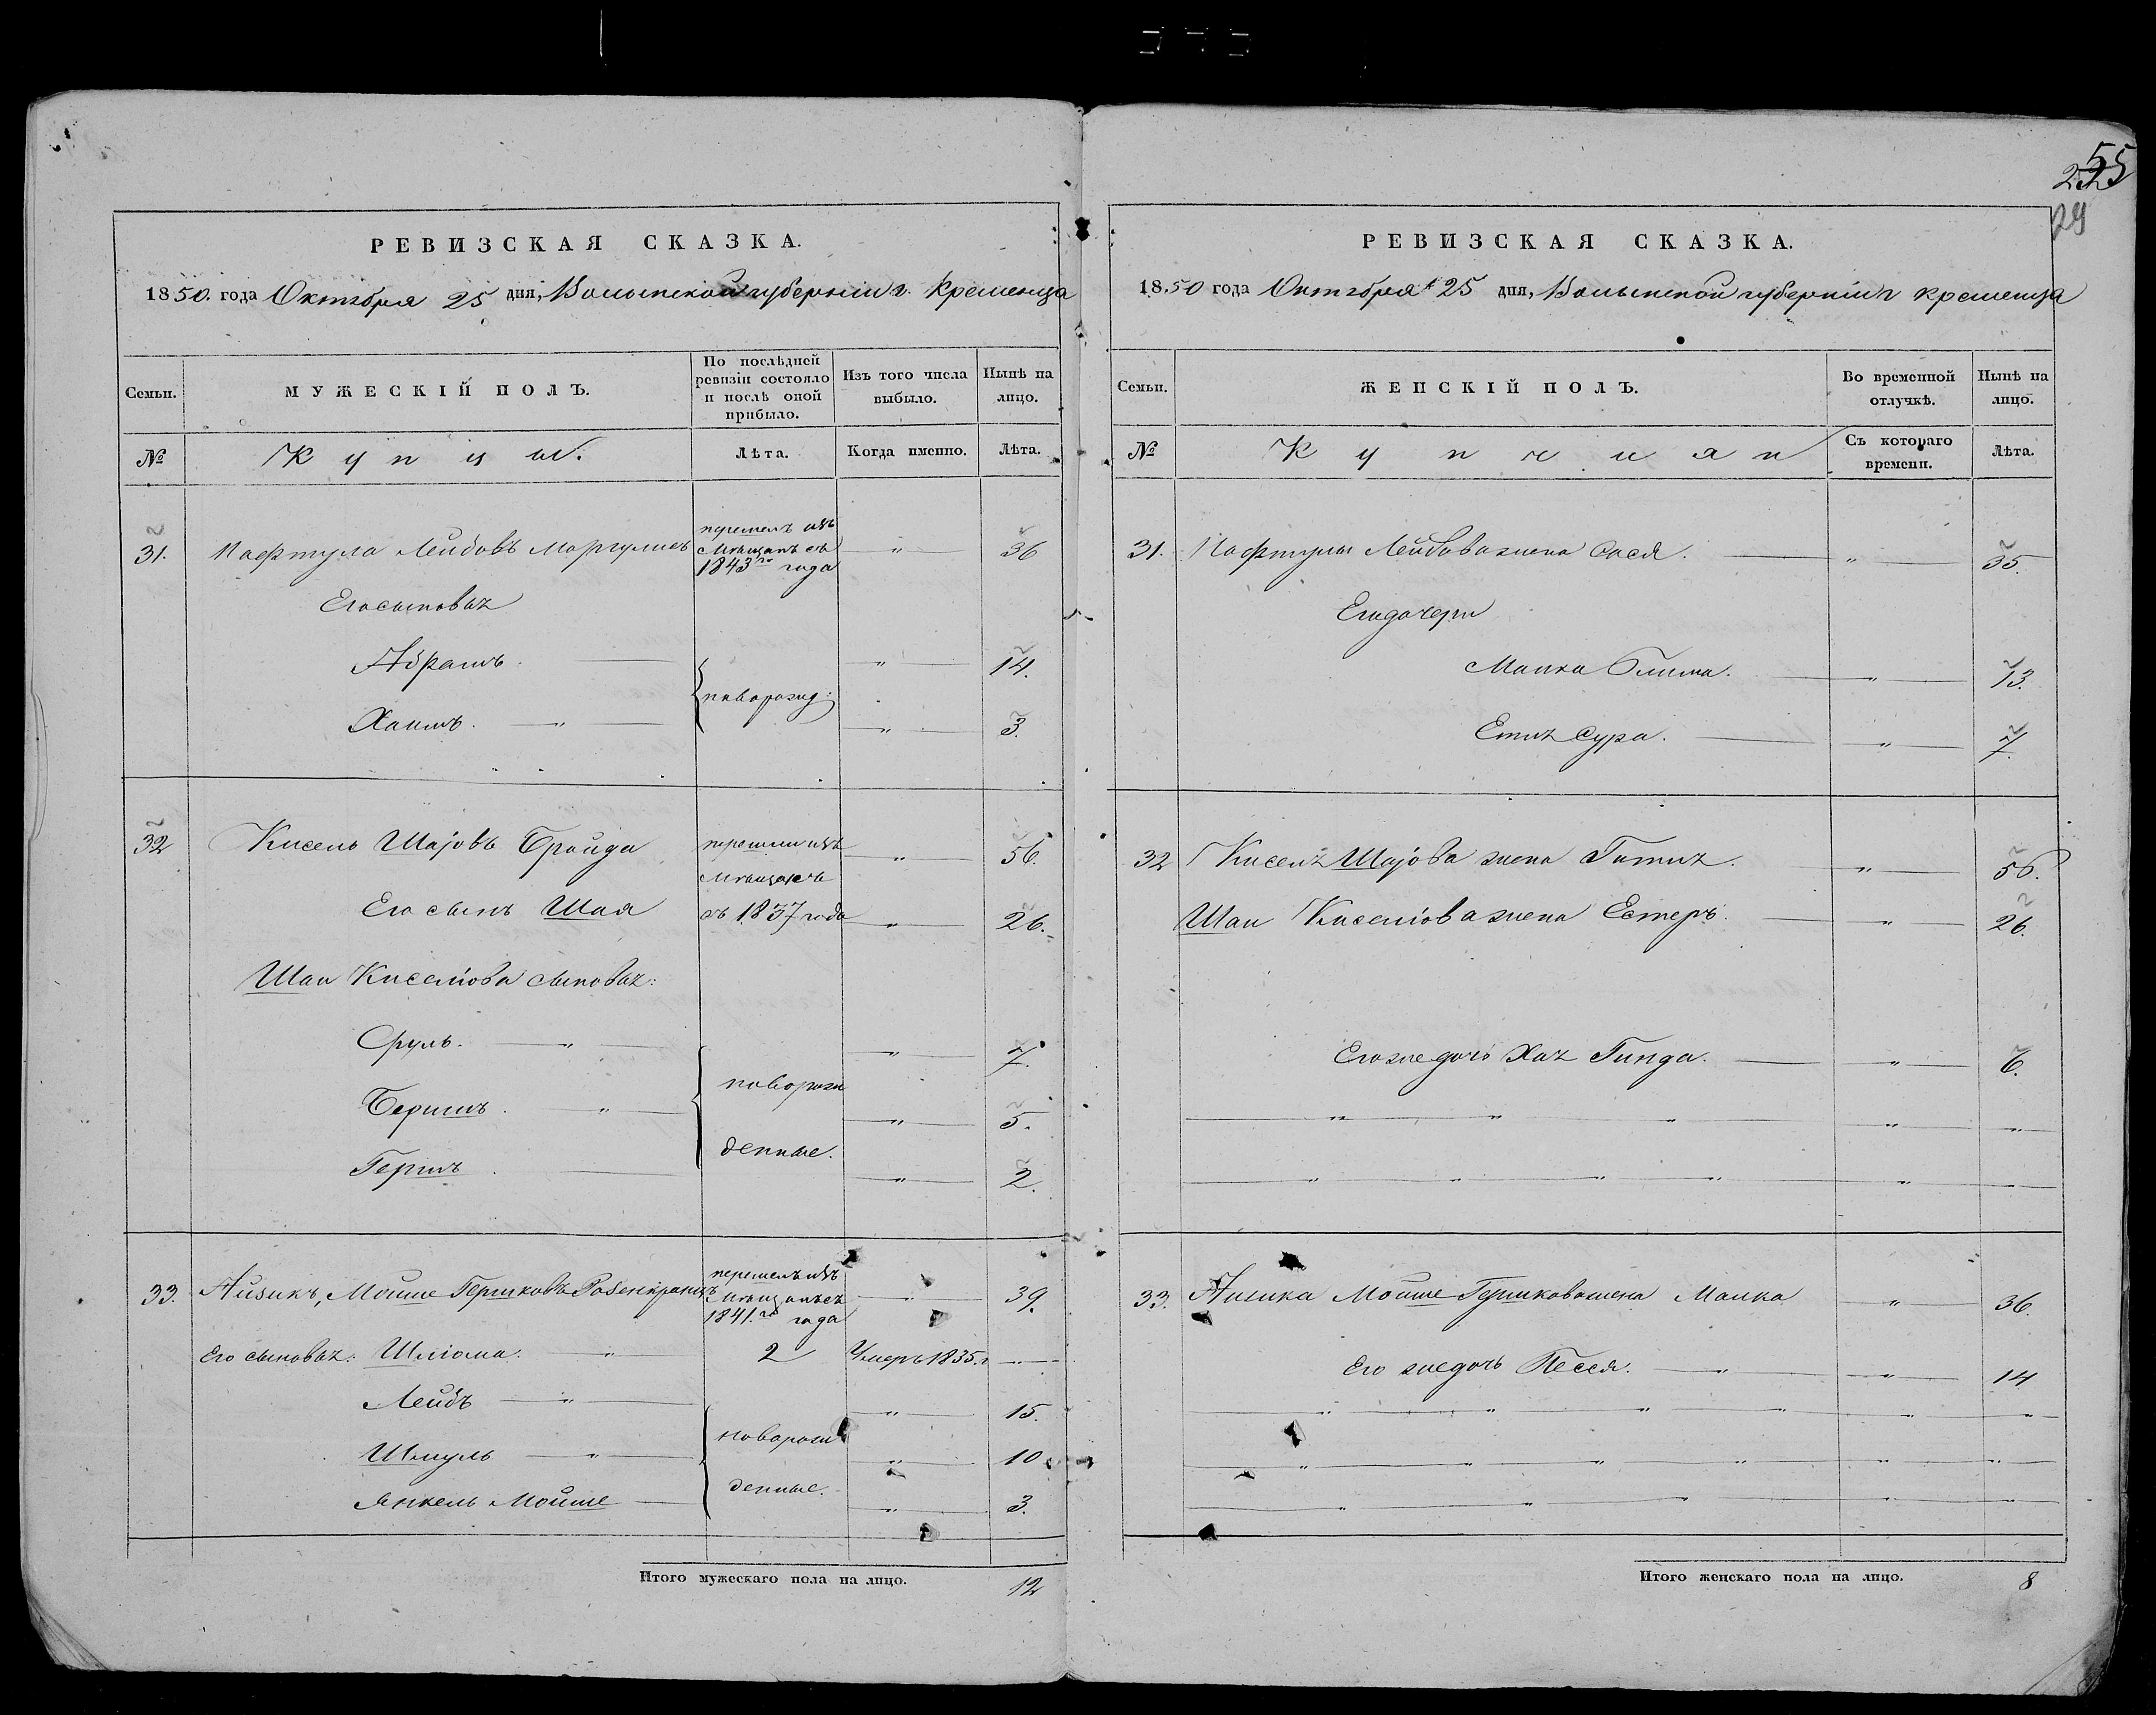 55
29
РЕВИЗСКАЯ СКАЗКА.
1850. года Октября 25 дня, Волынской губерніи г. Кременца
Семьи.
МУЖЕСКІЙ ПОЛЪ.
По послѣдней ревизіи состояло и послѣ оной прибыло.
Изъ того числа выбыло.
Нынѣ на лицо.
№
Купцы.
Лѣта.
Когда именно.
Лѣта.
31. Нафтула Лейбовъ Маргулисъ перешелъ изъ мѣщанъ съ 1843го года " 36
Его сыновья
Абрамъ. " 14.
новорожд:
Хаимъ. " " 3.
32 Кисель Шаіовъ Бройда перешли изъ " 56.
мѣщанъ
Его сынъ Шая съ 1837 года " 26.
Шаи Киселіова сыновья:
Сруль. " " 7.
новорож
Беришъ. " " 5.
денные.
Гершъ. " 2.
33. Айзикъ, Мойше Гершковъ Розенкранцъ перешелъ изъ мѣщанъ съ 1841.го года " 39.
Его сыновья: Шліома. " 2 Умеръ 1835. г
Лейбъ " " 15.
новорож
Шмуль " " 10
денные.
Янкель Мойше " 3.
Итого мужескаго пола на лицо. 12
РЕВИЗСКАЯ СКАЗКА.
1850 года Октября 25 дня, Волынской губерніи г Кременца
Семьи.
ЖЕНСКІЙ ПОЛЪ.
Во временной отлучкѣ.
Нынѣ на лицо.
№
Купчихи
Съ котораго времени.
Лѣта.
31. Нафтулы Лейбова жена Сося. " 35.
Его дочери
Малка Блима. " 13.
Етя Сура. " 7.
32 Киселя Шаіова жена Гитля. " 56.
Шаи Киселіова жена Естеръ. " 26.
Его же дочь Хая Гинда. " 6.
" " " " "
" " " " " "
33. Айзика Мойше Гершкова жена Малка " 36.
Его же дочь Песся. " " 14
" " " " " "
" " " " " "
" " " " "
Итого женскаго пола на лицо. 8